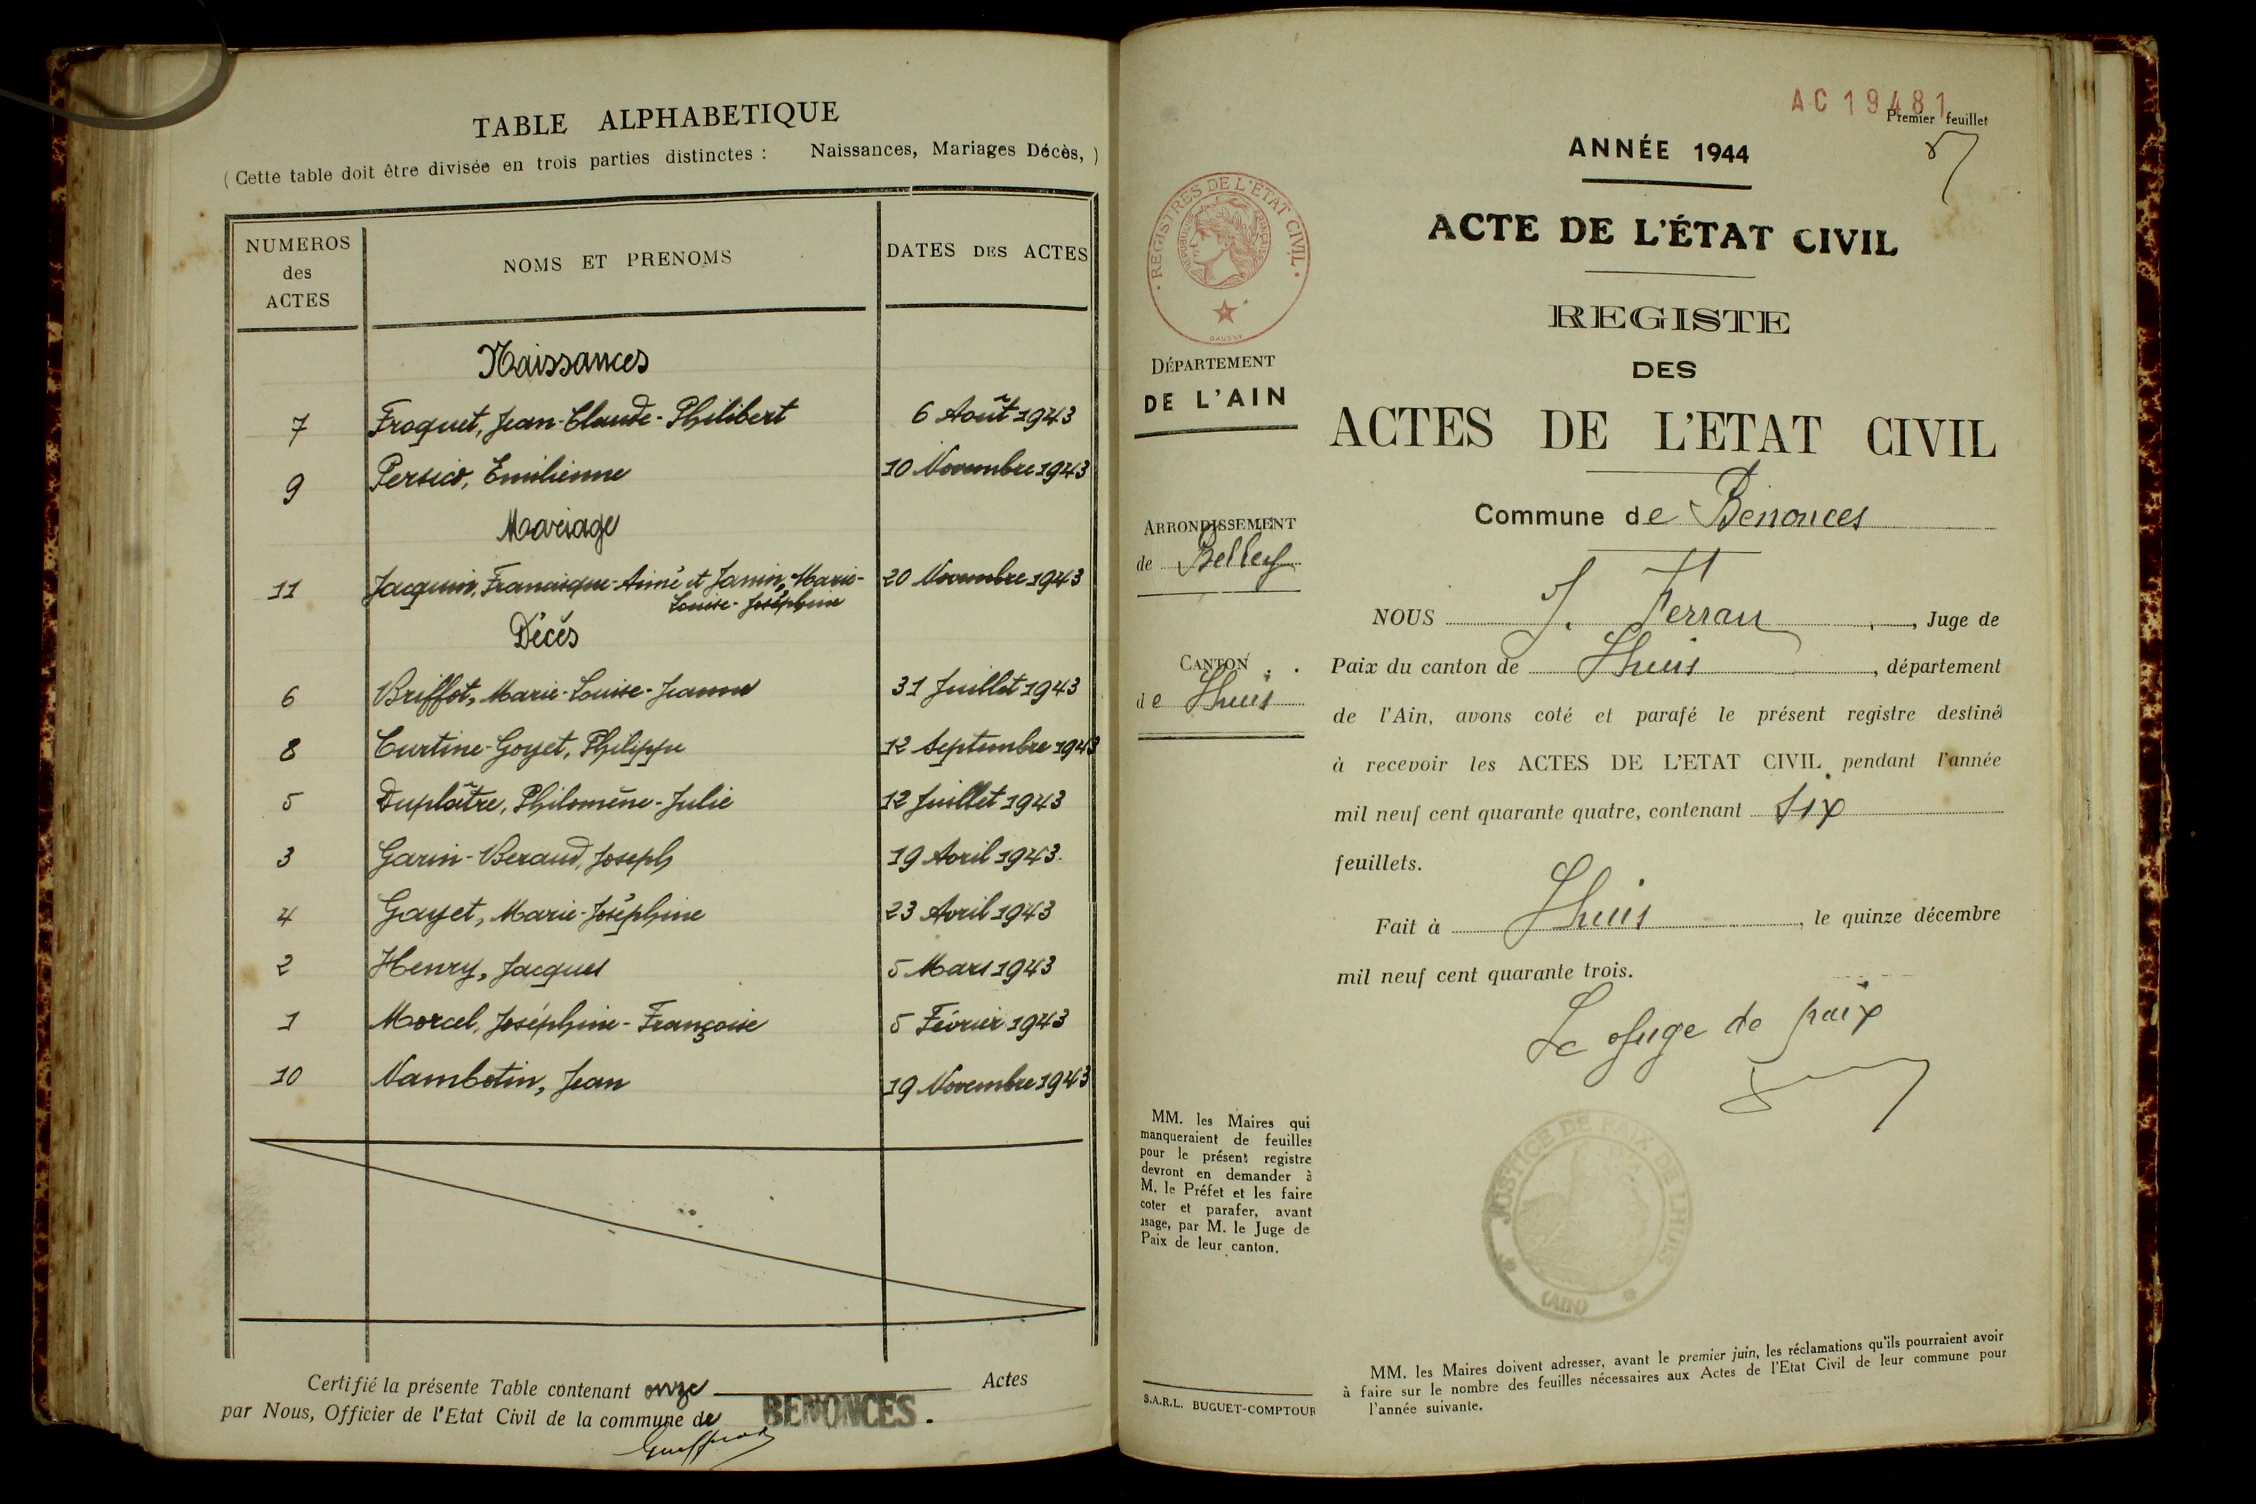 TABLE ALPHABETIQUE
( Cette table doit être divisée en trois parties distinctes : Naissances, Mariages Décès, )
NUMEROS des ACTES
NOMS ET PRENOMS
DATES DES ACTES
Naissances
7 Froquet, Jean-Claude-Philibert 6 Août 1943
9 Persico, Emilienne 10 Novembre 1943
Mariage
11 Jacquin, Francisque-Aimé et Jamin, Marie- 20 Novembre 1943
Louise-Joséphine
Décés
6 Briffot, Marie-Louise-Jeanne 31 Juillet 1943
8 Curtine-Goyet, Philippe 12 Septembre 1943
5 Duplâtre, Philomène-Julie 12 Juillet 1943
3 Garin-Beraud, Joseph 19 Avril 1943.
4 Gayet, Marie-Joséphine 23 Avril 1943
2 Henry, Jacques 5 Mars 1943
1 Morcel, Joséphine-Françoise 5 Février 1943
10 Nambotin, Jean 19 Novembre 1943
Certifié la présente Table contenant onze Actes
par Nous, Officier de l'Etat Civil de la commune de BENONCES.
AC 19481
Premier feuillet
ANNÉE 1944
ACTE DE L'ÉTAT CIVIL
REGISTE
DES
ACTES DE L'ETAT CIVIL
Commune de Bénonces
REGISTRES DE L'ÉTAT CIVIL
DÉPARTEMENT
DE L'AIN
ARRONDISSEMENT
de Belley
CANTON
de Lhuis
NOUS J. Ferran, Juge de
Paix du canton de Lhuis, département
de l'Ain, avons coté et parafé le présent registre destiné
à recevoir les ACTES DE L'ETAT CIVIL pendant l'année
mil neuf cent quarante quatre, contenant six
feuillets.
Fait à Lhuis, le quinze décembre
mil neuf cent quarante trois.
Le Juge de paix
JUSTICE DE PAIX DE LHUIS
(AIN)
MM. les Maires qui
manqueraient de feuilles
pour le présent registre
devront en demander à
M. le Préfet et les faire
coter et parafer, avant
usage, par M. le Juge de
Paix de leur canton.
S.A.R.L. BUGUET-COMPTOUR
MM. les Maires doivent adresser, avant le premier juin, les réclamations qu'ils pourraient avoir
à faire sur le nombre des feuilles nécessaires aux Actes de l'Etat Civil de leur commune pour
l'année suivante.